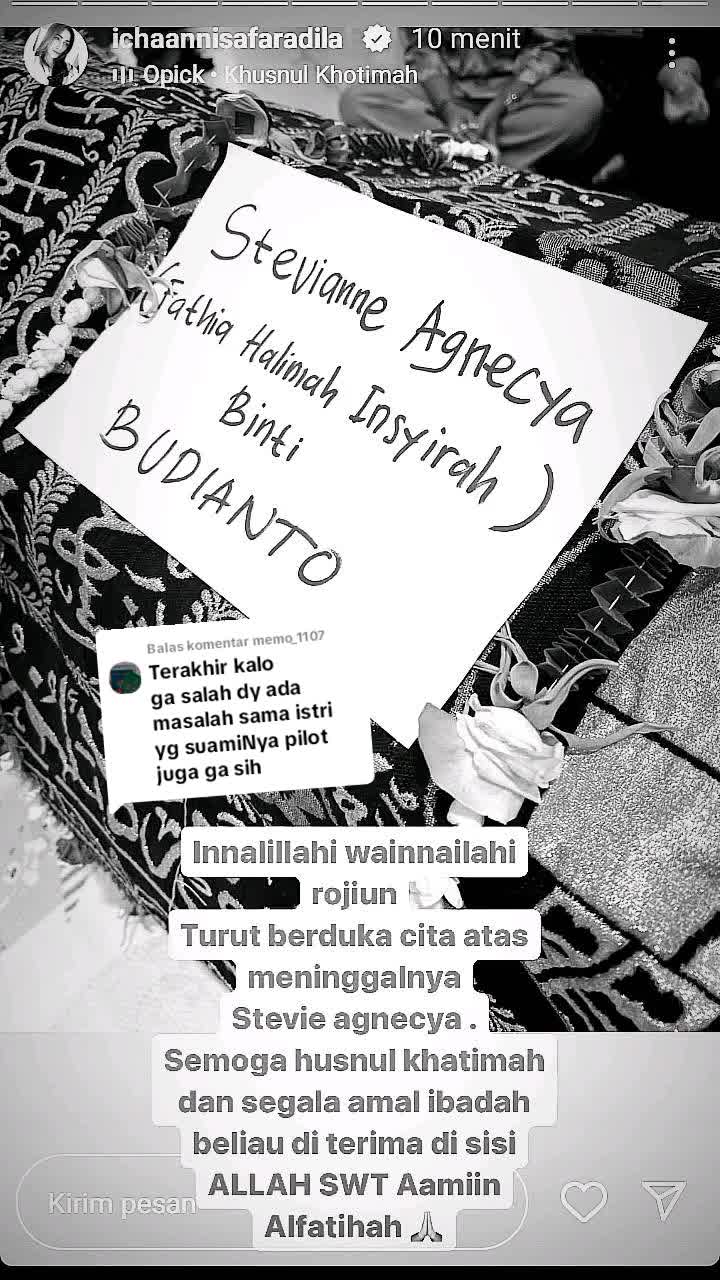 ichaannisafaradila 10 menit
Opick • Khusnul Khotimah
Stevianne Agnecya
(Fathia Halimah Insyirah)
Binti
BUDIANTO
Balas komentar memo_1107
Terakhir kalo
ga salah dy ada
masalah sama istri
yg suamiNya pilot
juga ga sih
Innalillahi wainnailahi
rojiun
Turut berduka cita atas
meninggalnya
Stevie agnecya .
Semoga husnul khatimah
dan segala amal ibadah
beliau di terima di sisi
ALLAH SWT Aamiin
Alfatihah 🙏
Kirim pesan